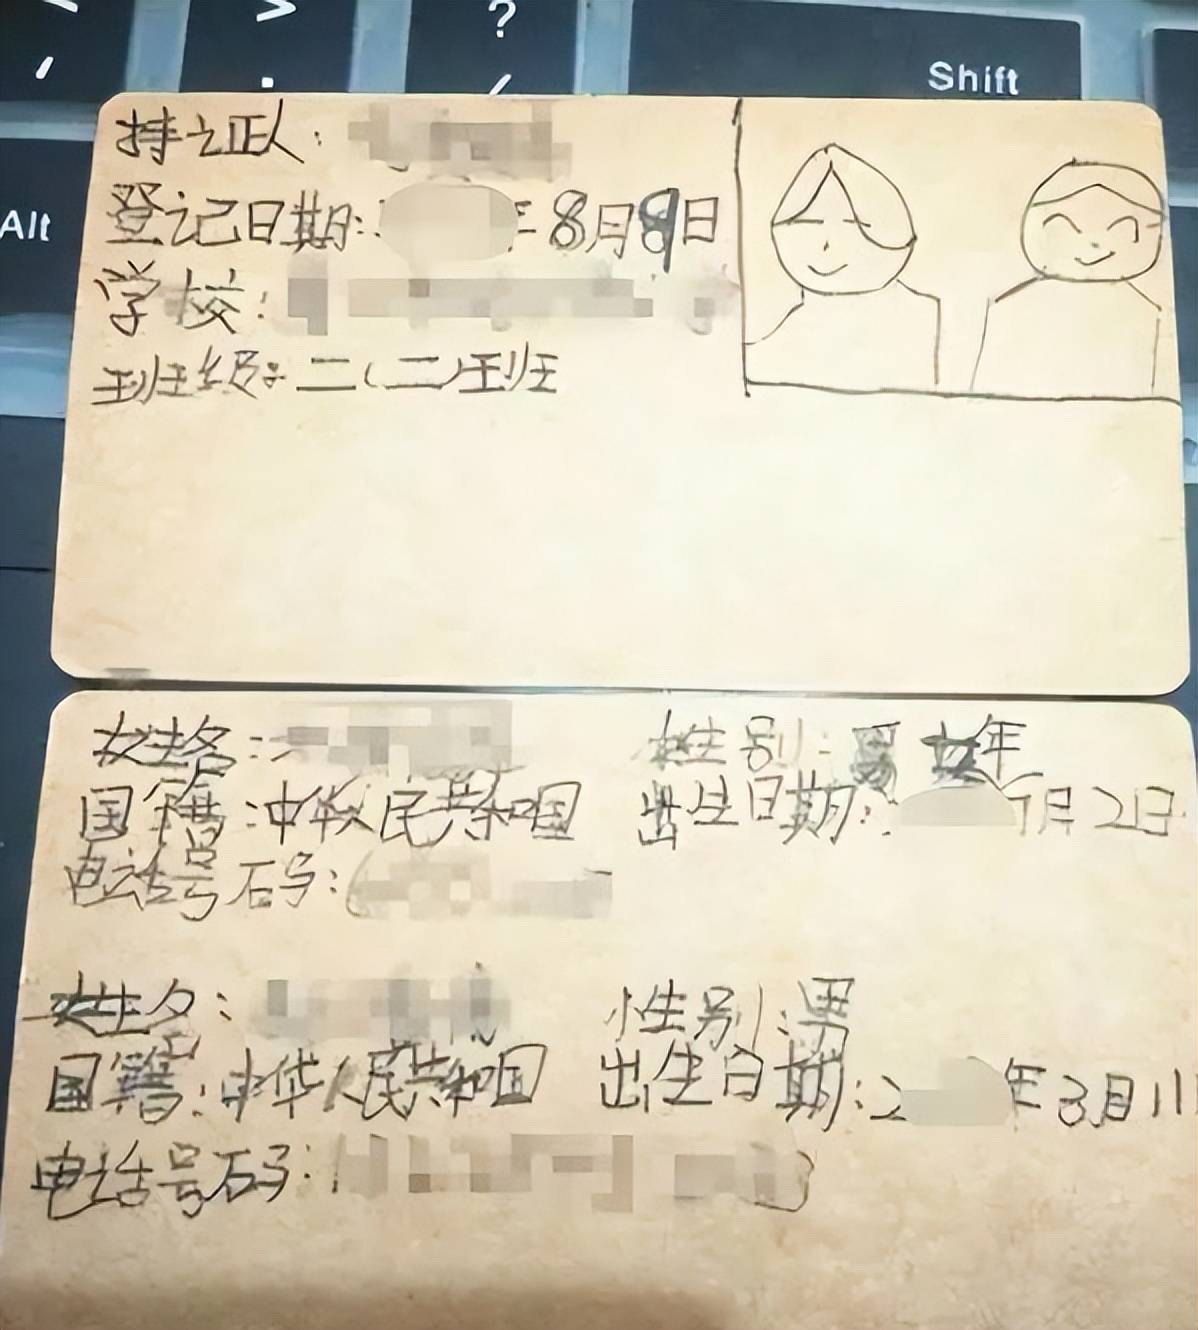 > ?
, . /
Shift
Alt
持证人:
登记日期: 年8月9日
学校:
班级: 二(二)班
姓名: 性别: 女
国籍:中华人民共和国 出生日期: 年 月2日
电话号码:
姓名: 性别:男
国籍:中华人民共和国 出生日期:2 年3月11
电话号码: